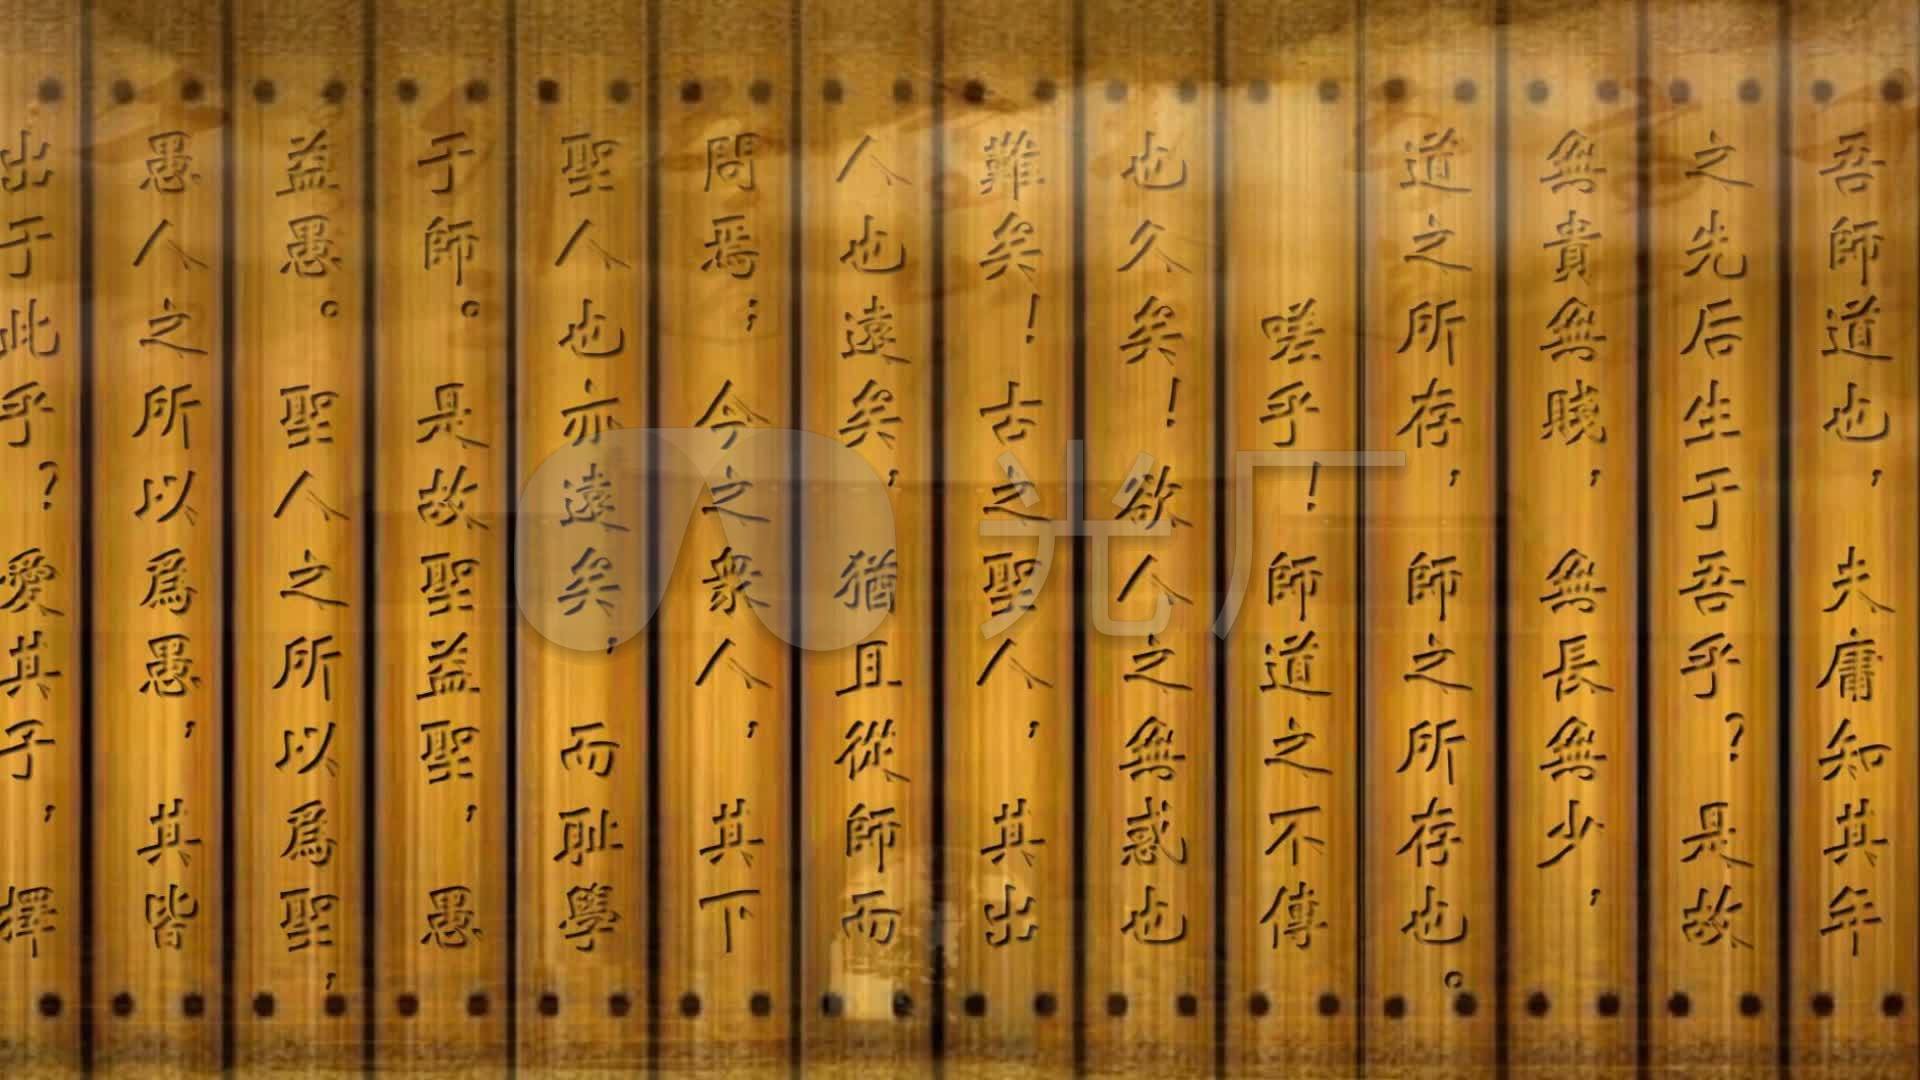 吾師道也，夫庸知其年
之先后生于吾乎？是故
無貴無賤，無長無少，
道之所存，師之所存也。
嗟乎！師道之不傳
也久矣！欲人之無惑也
難矣！古之聖人，其出
人也遠矣，猶且從師而
問焉；今之衆人，其下
聖人也亦遠矣，而耻學
于師。是故聖益聖，愚
益愚。聖人之所以為聖，
愚人之所以為愚，其皆
出于此乎？愛其子，擇
光厂